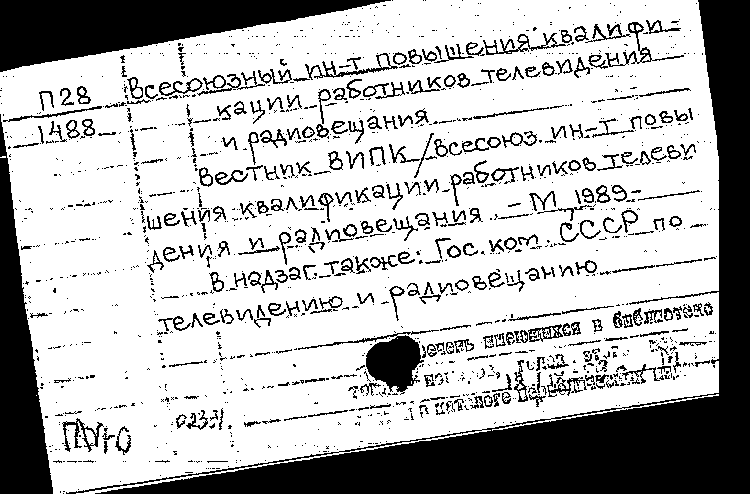 П28
1488
Всесоюзный ин-т повышения квалифи-
кации работников телевидения
и радиовещания.
Вестник ВИПК / Всесоюз. ин-т повы
шения квалификации работников телеви
дения и радиовещания. - М, 1989-
В надзаг. также: Гос. ком. СССР по
телевидению и радиовещанию
имеющихся в библиотеке